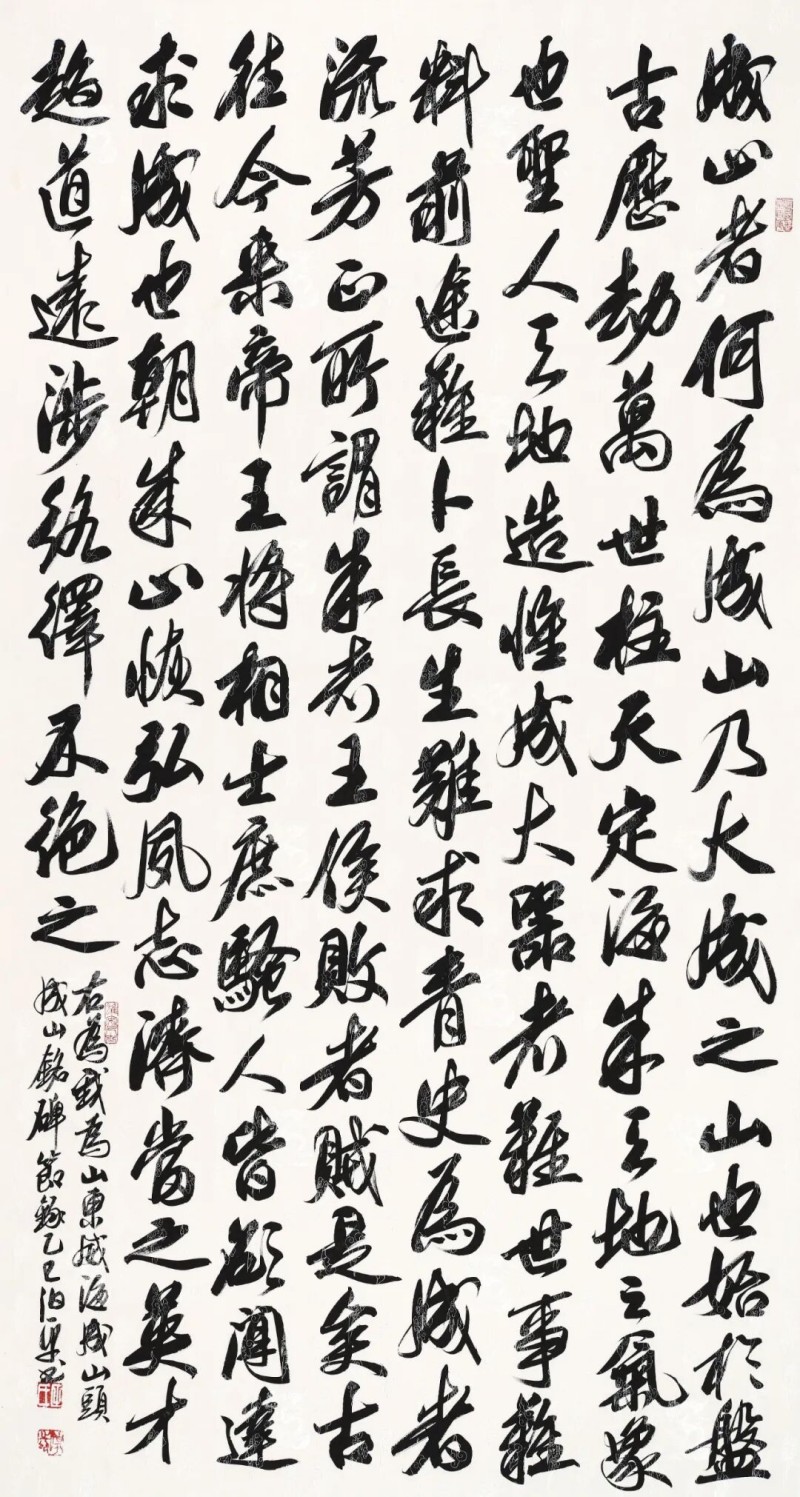 成山者何為成山乃大成之山也始於盤
古歷劫萬世柱天定海成天地之氣象
也聖人天地造惟成大器者難世事難
料前途難卜長生難求青史為成者
流芳正所謂成者王侯敗者賊是矣古
往今來帝王將相士庶騷人皆欲聞達
求成也朝成山慎弘夙志濟當之英才
趨道遠涉絡繹不絕之
右為我為山東威海成山頭
成山銘碑節錄乙巳伯